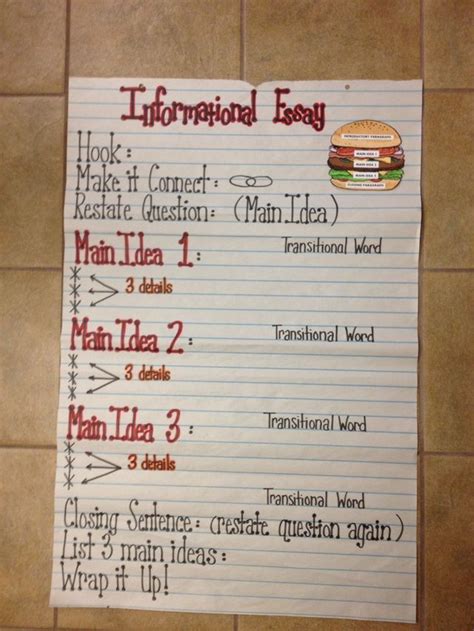 Informational Essay
INTRODUCTORY PARAGRAPH
MAIN IDEA 1
MAIN IDEA 2
MAIN IDEA 3
CLOSING PARAGRAPH
Hook:
Make it Connect:
Restate Question: (Main Idea)
Main Idea 1: Transitional Word
3 details
Main Idea 2: Transitional Word
3 details
Main Idea 3: Transitional Word
3 details
Transitional Word
Closing Sentence: (restate question again)
List 3 main ideas:
Wrap it Up!